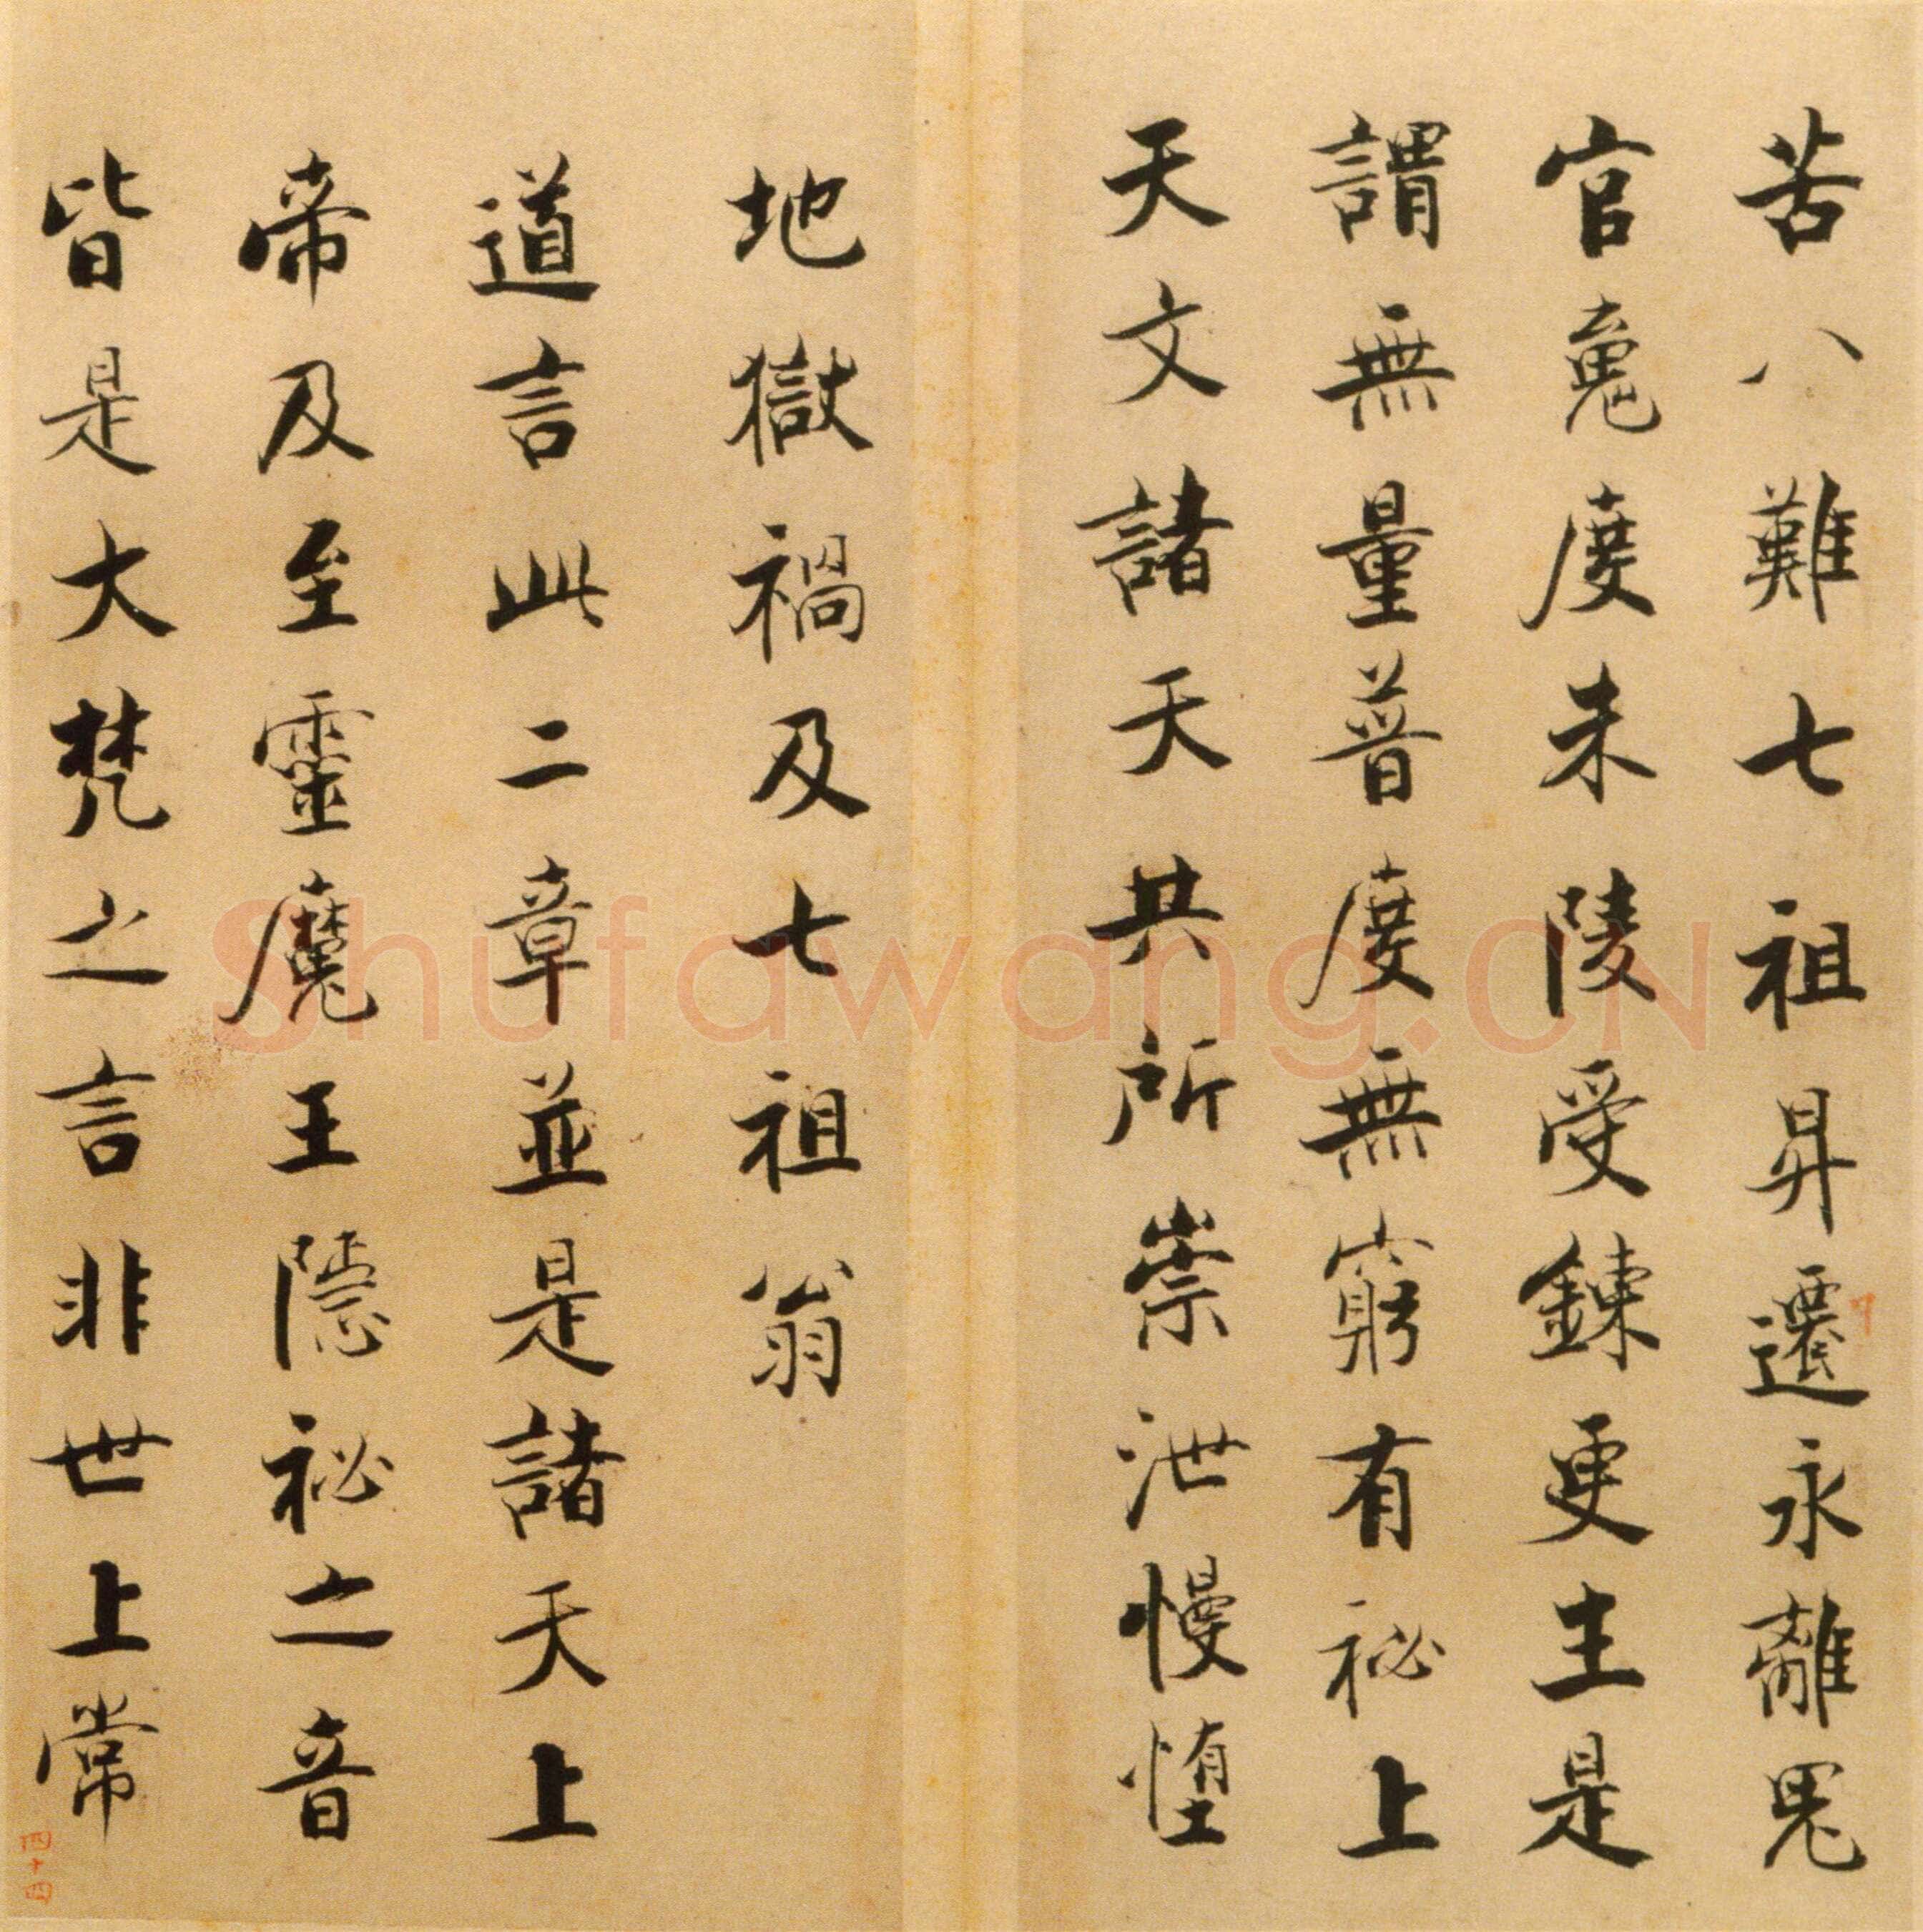 苦八難七祖昇遷永離鬼
官䰟度朱陵受鍊更生是
謂無量普度無窮有祕上
天文諸天共所崇泄慢墮
地獄禍及七祖翁
道言此二章並是諸天上
帝及至靈魔王隱祕之音
皆是大梵之言非世上常
四十四
Shufawang.CN